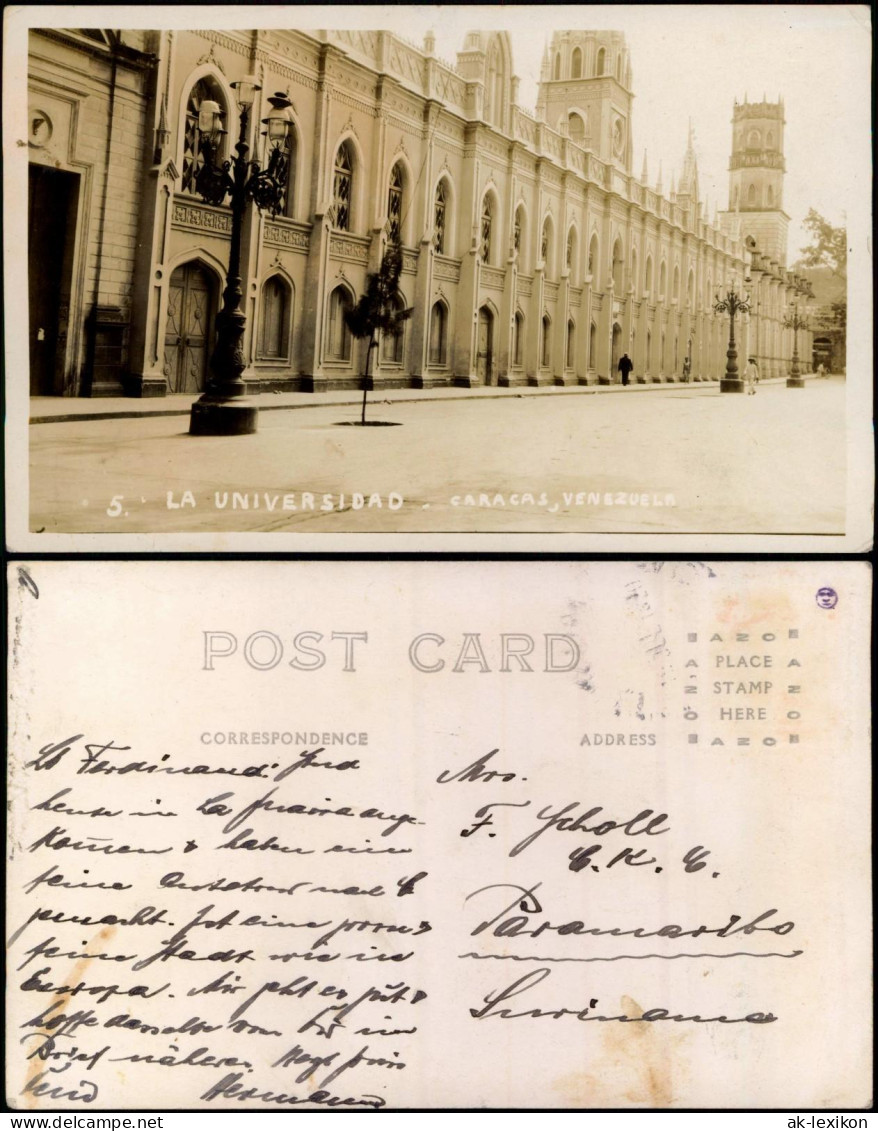 5. LA UNIVERSIDAD - CARACAS, VENEZUELA
POST CARD
AZO
PLACE
STAMP
HERE
AZO
CORRESPONDENCE
ADDRESS
Lb Ferdinand: Sind
heute in La Guaira ange-
kom̄en & haben eine
feine Autotour nach C
gemacht. Ist eine
feine Stadt wie in
Europa. Mir geht es gut &
hoffe dasselbe von Dir im
Brief näheres
Hermann
Mrs.
F. Scholl
C.K.C.
Paramaribo
Suriname
ak-lexikon
www.delcampe.net